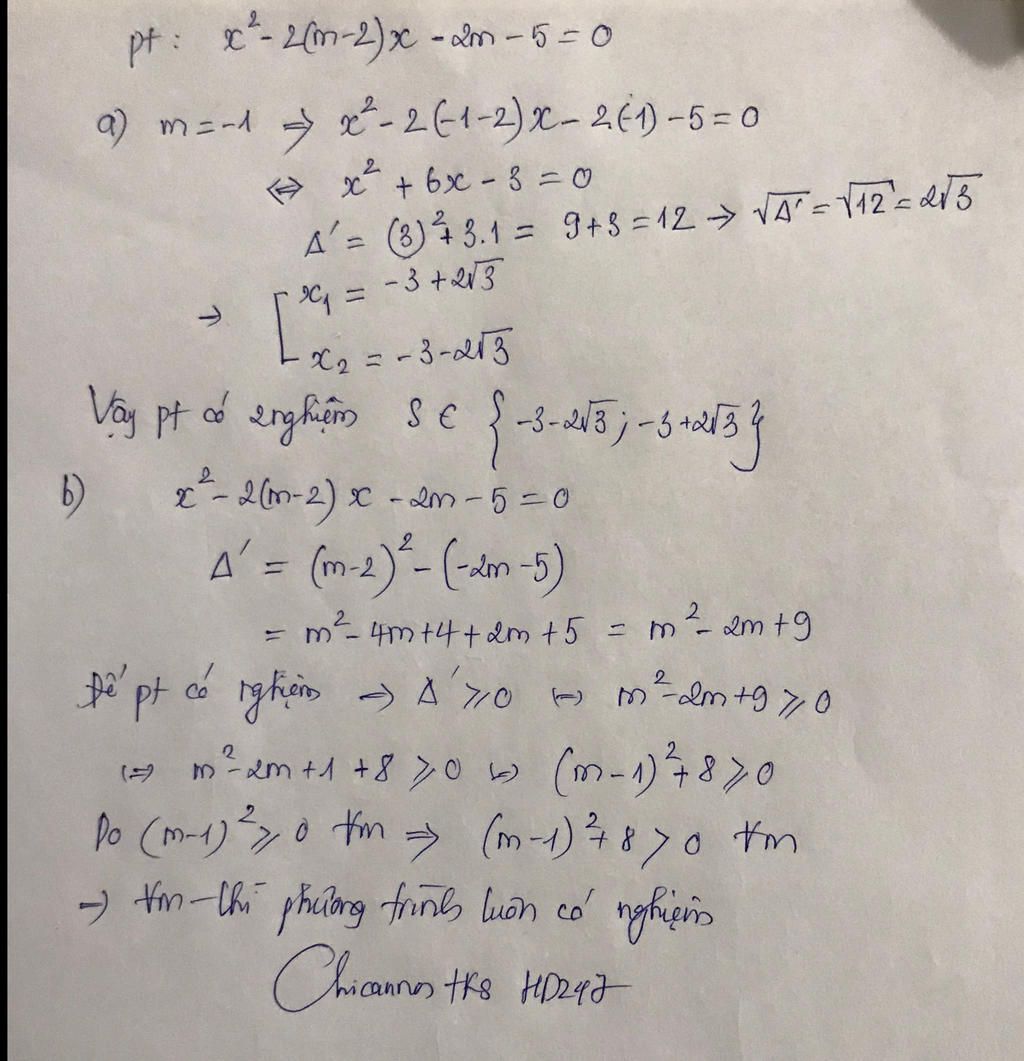 pt: x² - 2(m-2)x - 2m - 5 = 0
a) m = -1 ⇒ x² - 2(-1-2)x - 2(-1) - 5 = 0
⇔ x² + 6x - 3 = 0
Δ' = (3)² + 3.1 = 9+3 = 12 → √Δ' = √12 = 2√3
→ [ x₁ = -3 + 2√3
x₂ = -3 - 2√3
Vậy pt có 2 nghiệm S ∈ { -3-2√3 ; -3+2√3 }
b) x² - 2(m-2)x - 2m - 5 = 0
Δ' = (m-2)² - (-2m-5)
= m² - 4m + 4 + 2m + 5 = m² - 2m + 9
Để pt có nghiệm → Δ' ⩾ 0 ⇔ m² - 2m + 9 ⩾ 0
⇔ m² - 2m + 1 + 8 ⩾ 0 ⇔ (m-1)² + 8 ⩾ 0
Do (m-1)² ⩾ 0 ∀m ⇒ (m-1)² + 8 > 0 ∀m
→ ∀m thì phương trình luôn có nghiệm
HD247